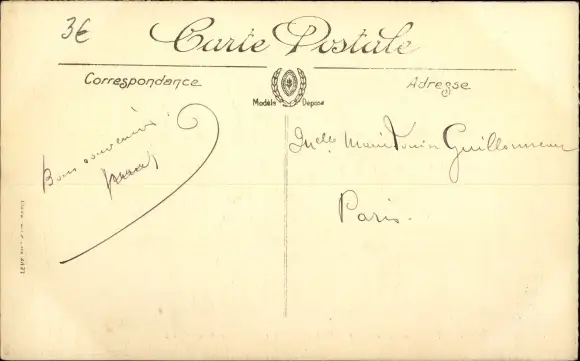 3€
Carte Postale
Correspondance
Adresse
Modèle Déposé
Bons souvenirs
Melle Marie Louise Guillonneau
Paris.